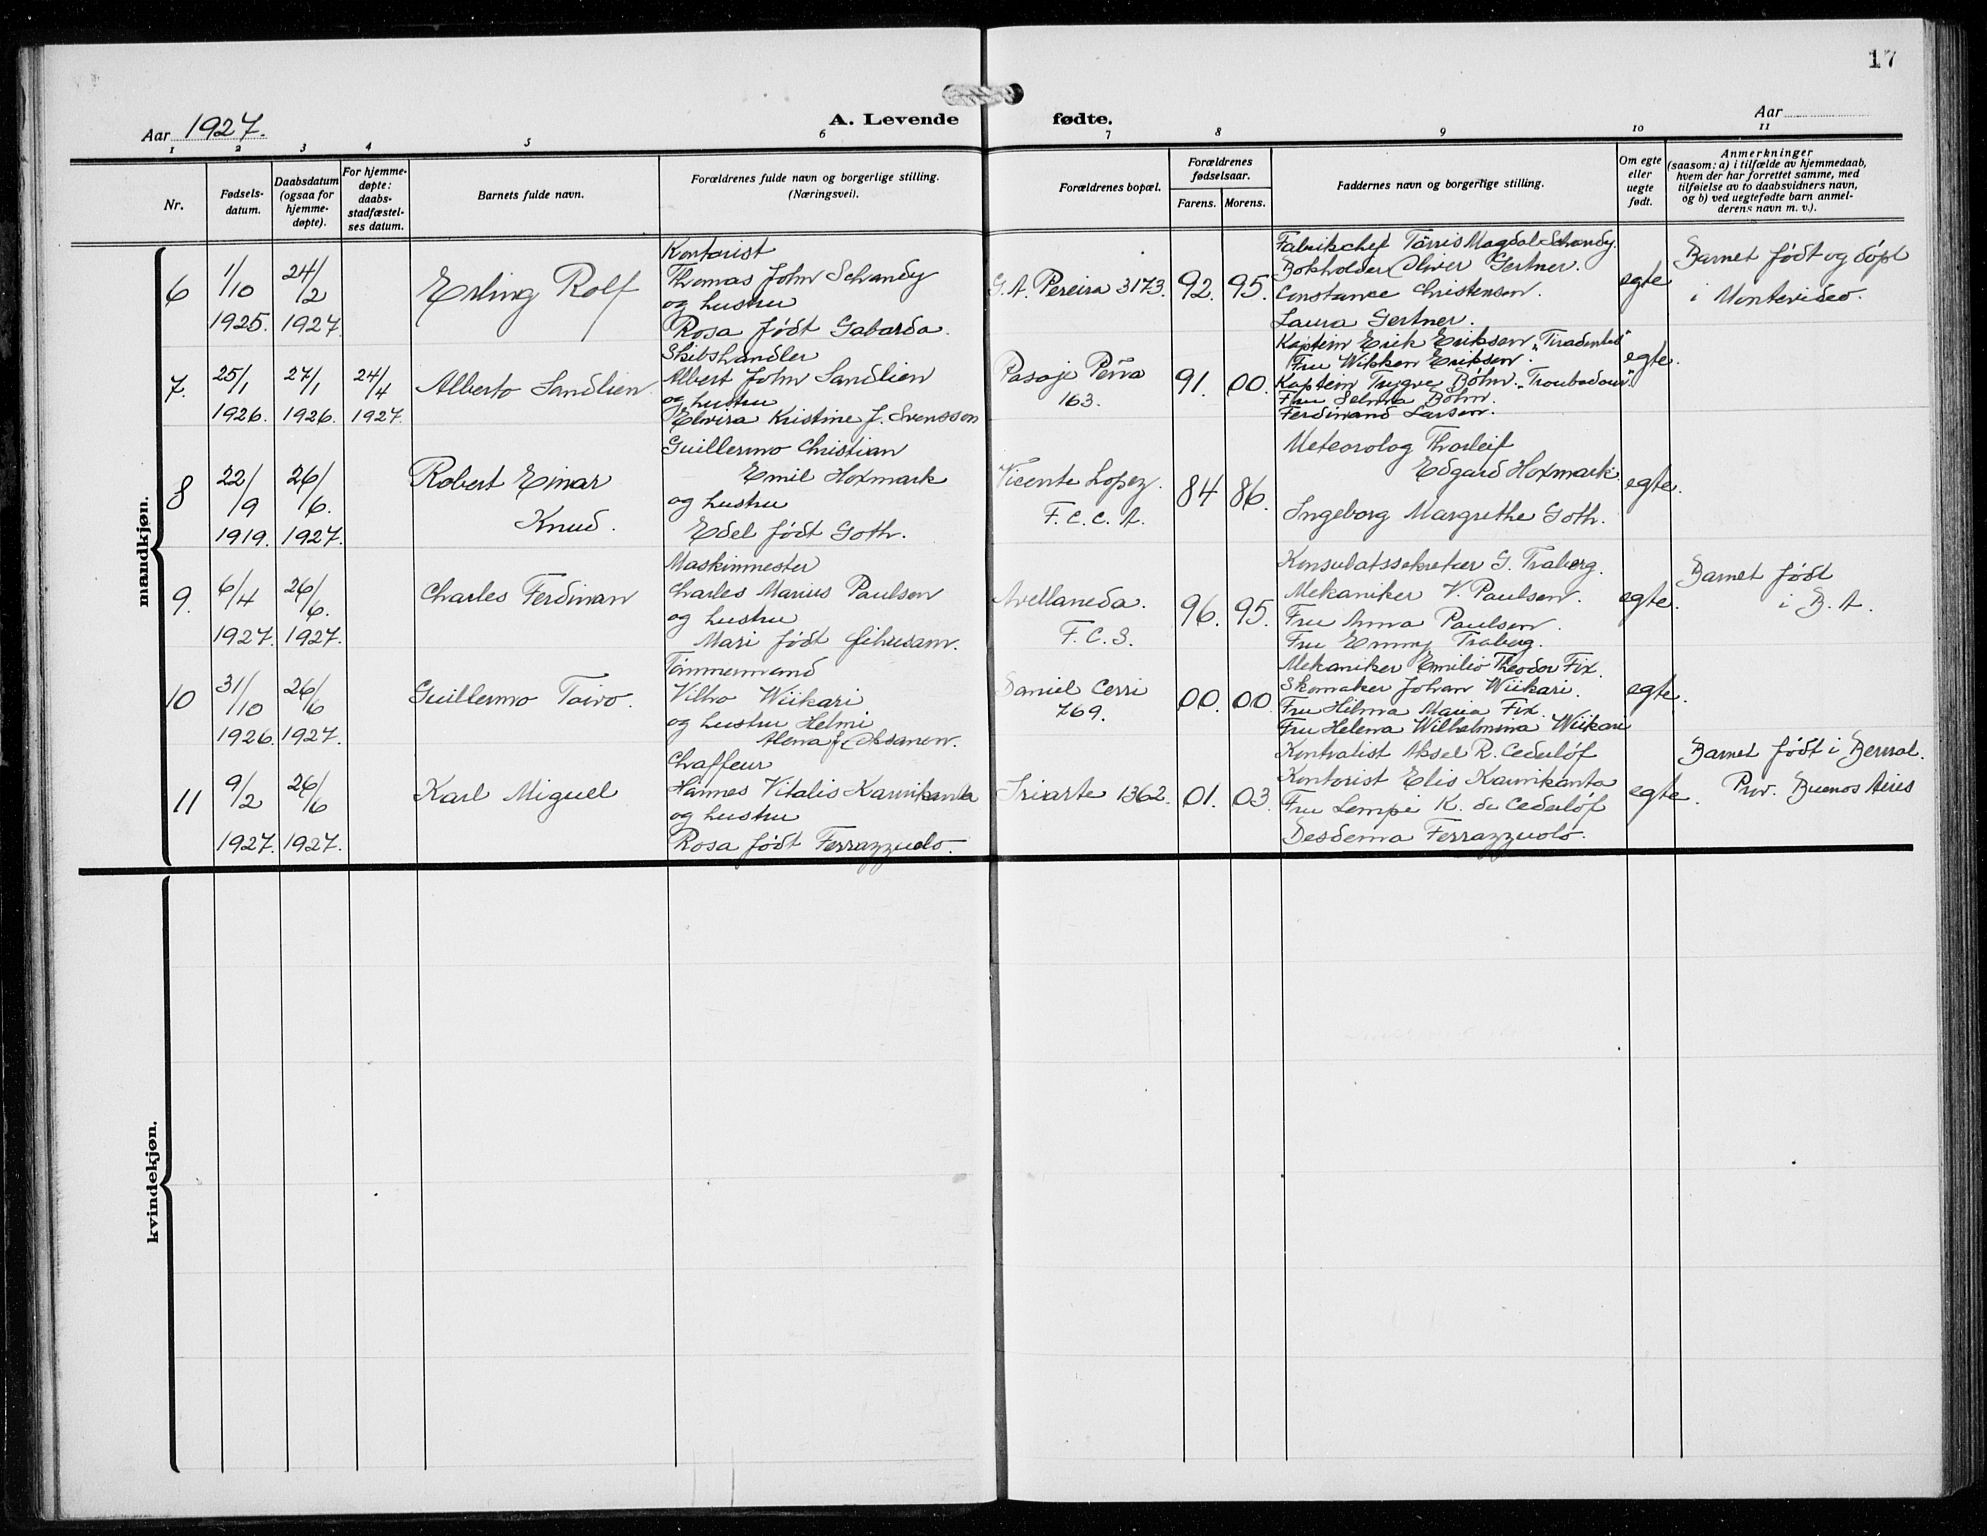 17
Aar 1927.
A. Levende fødte.
Aar
1 2 3 4 5 6 7 8 9 10 11
Nr.
Fødsels-
datum.
Daabsdatum
(ogsaa for
hjemme-
døpte).
For hjemme-
døpte:
daabs-
stadfæstel-
ses datum.
Barnets fulde navn.
Forældrenes fulde navn og borgerlige stilling.
(Næringsvei).
Forældrenes bopæl.
Forældrenes
fødselsaar.
Farens. Morens.
Faddernes navn og borgerlige stilling.
Om egte
eller
uegte
født.
Anmerkninger
(saasom: a) i tilfælde av hjemmedaab,
hvem der har forrettet samme, med
tilføielse av to daabsvidners navn,
og b) ved uegtefødte barn anmel-
derens navn m. v.).
mandkjøn.
6
1/10
1925.
24/2
1927.
Erling Rolf
Kontorist
Thomas John Schandy
og hustru
Rosa født Gabarda.
G. A. Pereira 3173.
92. 95.
Fabrikchef Tárris Magdal Schandy.
Bokholder Oliver Gertner.
Constance Christensen.
Laura Gertner.
egte
Barnet født og døpt
i Montevideo.
7.
25/1
1926.
27/1
1926.
24/4
1927.
Alberto Sandlien
Skibshandler
Albert John Sandlien
og hustru
Elvira Kristine f. Svensson
Pasaje Peña
163.
91. 00.
Kaptein Erik Eriksen "Tiradentes"
Fru Wikken Eriksen.
Kaptein Trygve Bøhn. "Troubadour".
Fru Selma Bøhn.
Ferdinand Larsen.
egte.
8
22/9
1919.
26/6.
1927.
Robert Einar
Knud.
Guillermo Christian
Emil Hoxmark
og hustru
Edel født Goth.
Vicente Lopez.
F. C. C. A.
84 86.
Meteorolog Thorleif
Edgard Hoxmark.
Ingeborg Margrethe Goth.
egte.
9.
6/4
1927.
26/6.
1927.
Charles Ferdinan
Maskinmester
Charles Marius Paulsen
og hustru
Mari født
Avellaneda.
F. C. S.
96. 95.
Konsulatssekretær G. Traberg.
Mekaniker V. Paulsen.
Fru Anna Paulsen.
Fru Emmy Traberg.
egte.
Barnet født
i B. A.
10
31/10
1926.
26/6
1927.
Guillermo Toivo.
Tømmermand
Vilho Wiikari
og hustru Helmi
Alena f. Oksanen.
Daniel Cerri
769.
00. 00
Mekaniker Emilio Theodor Fix.
Skomaker Johan Wiikari.
Fru Hilma Maria Fix.
Fru Helena Wilhelmina Wiikari
egte.
11
9/2
1927.
26/6
1927.
Karl Miguel
Chaffeur
Hannes Vitalis Kaunikanta
og hustru
Rosa født Ferrazzuolo.
Iriarte 1362.
01. 03.
Kontralist Aksel R. Cederlöf
Kontorist Elis Kaunikanta
Fru Lempi K. de Cederlöf
Desdema Ferrazzuolo.
egte.
Barnet født i Bernal.
Prov. Buenos Aires
kvindekjøn.